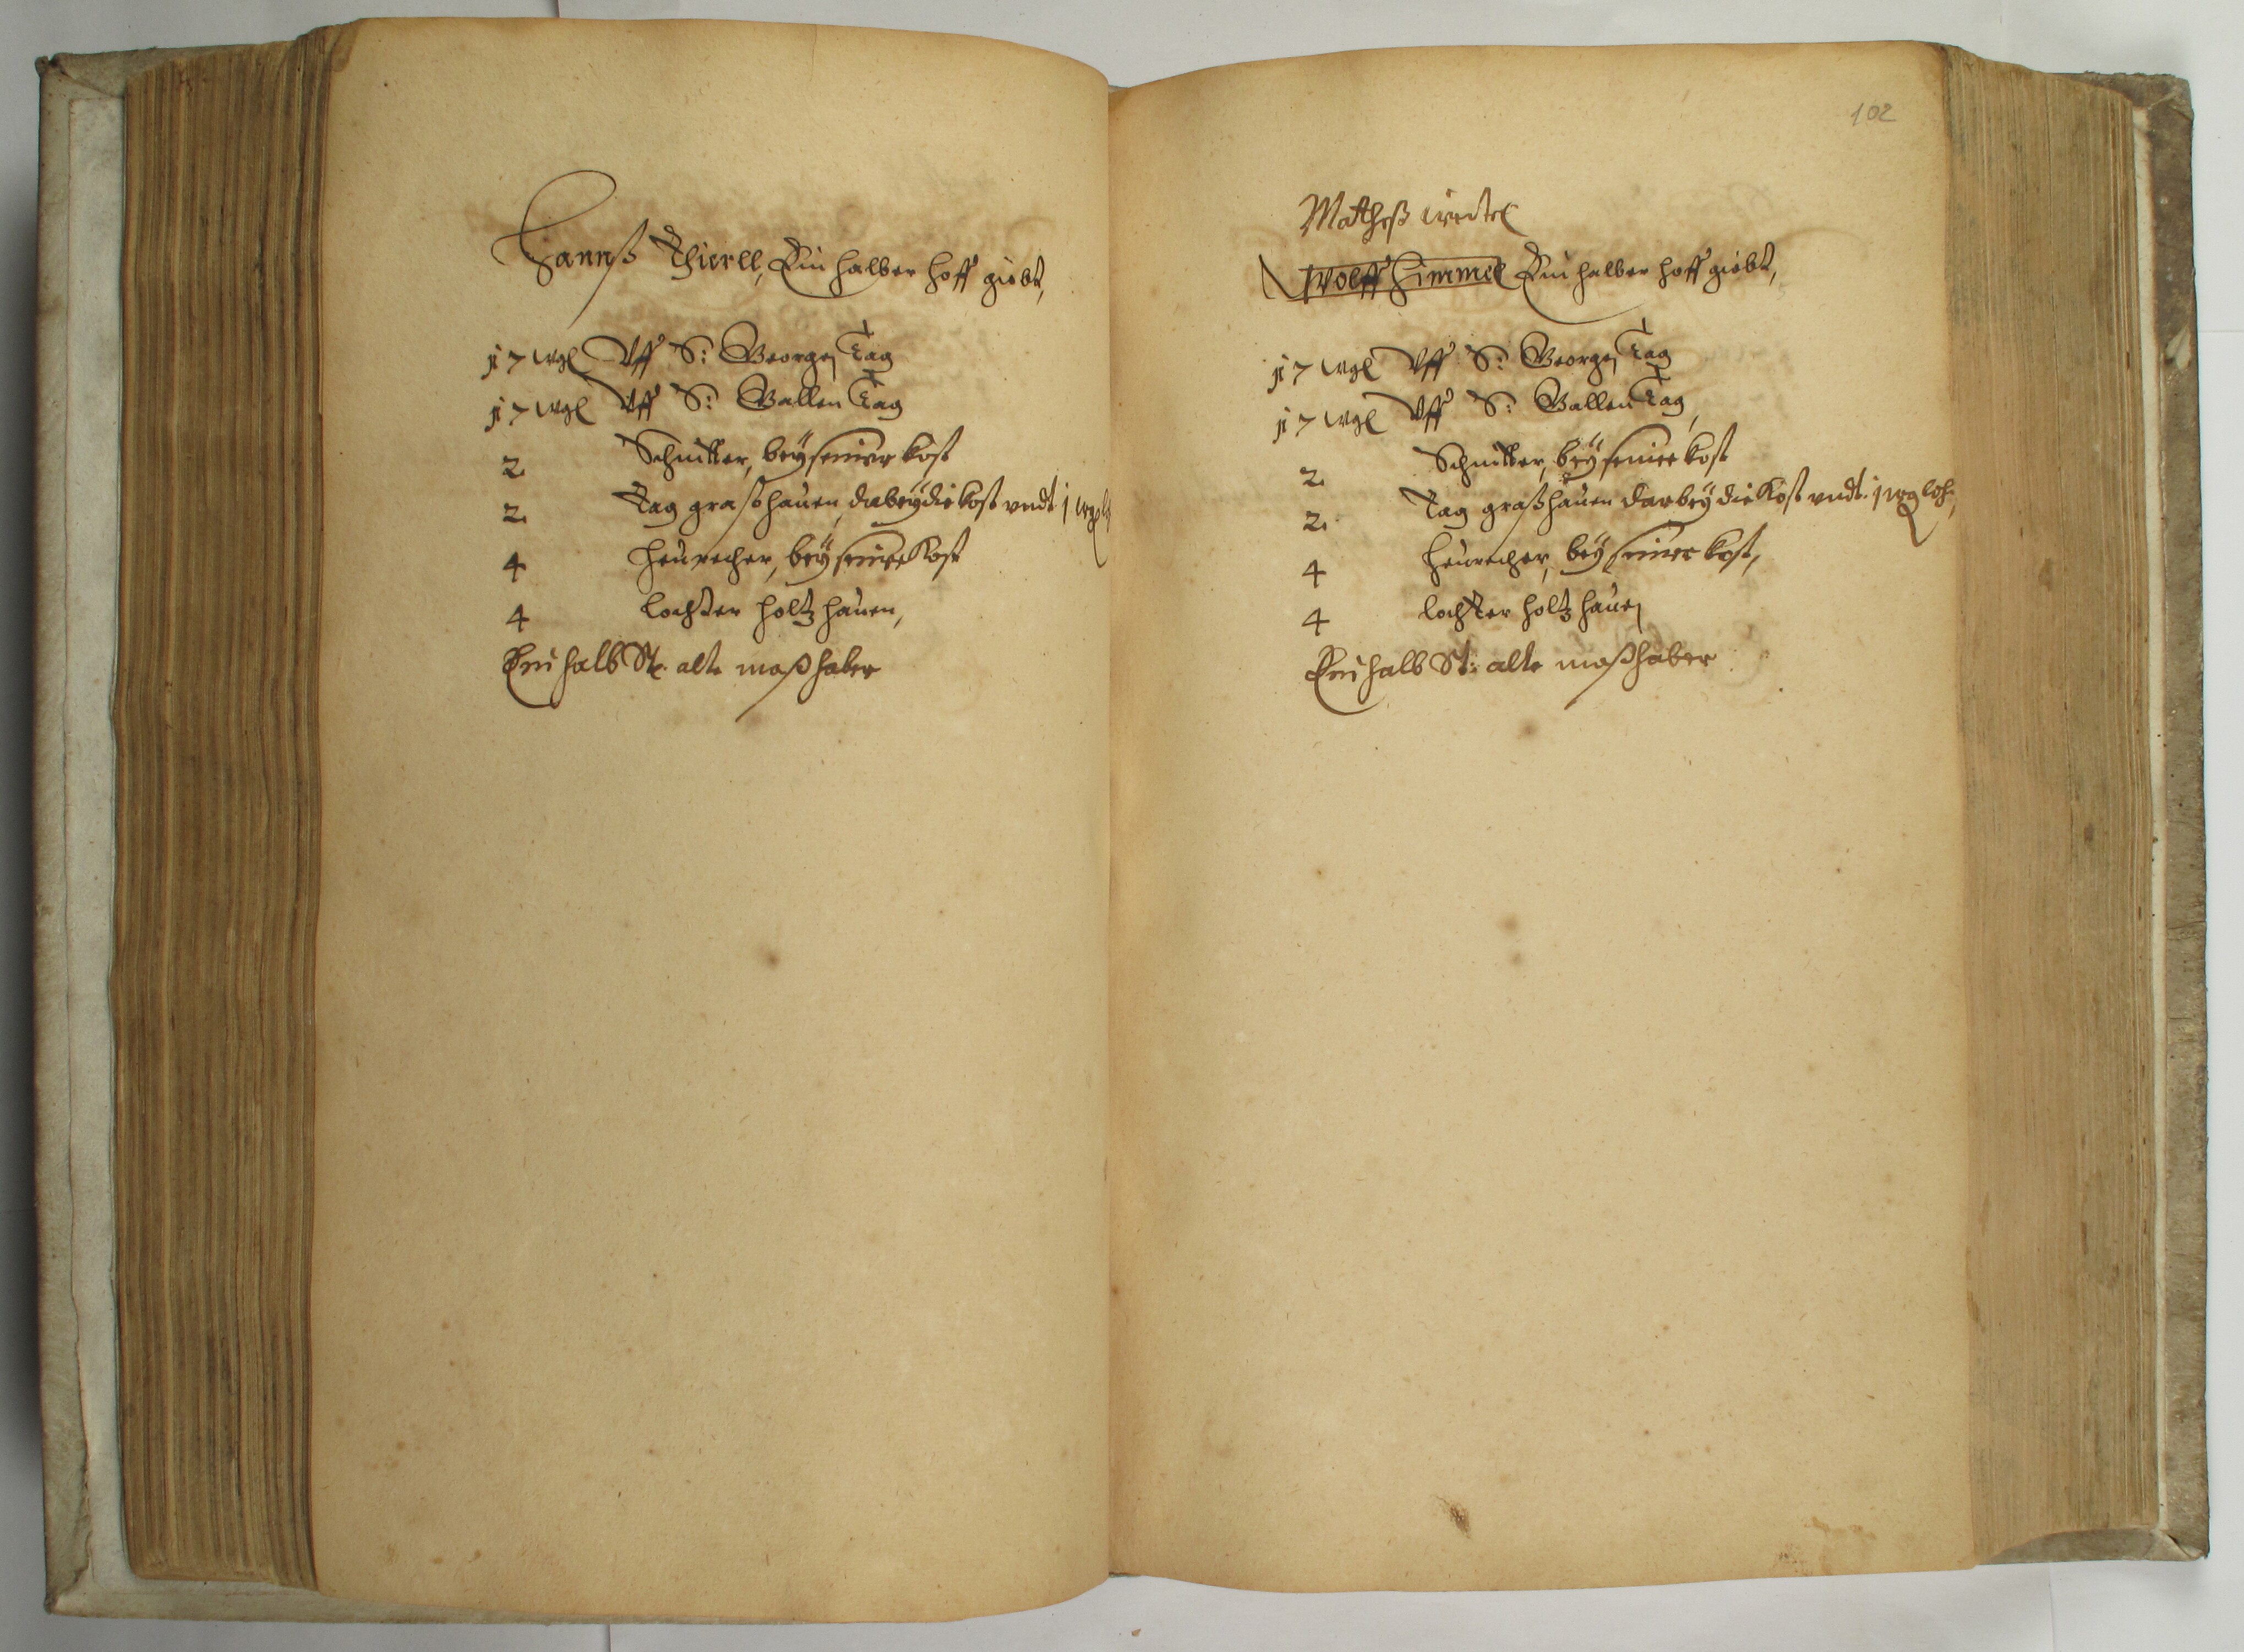 Hannß Thierll, Ein halber hoff giebt,
17 wgl Vff S: Georgen Tag
17 wgl Vff S: Gallen Tag
2 Schnitter, bey seiner kost
2 Tag graßhauen, dabey die kost vndt 1 wgl
4 heurecher, bey seiner kost
4 lochter holtz hauen,
Ein halb St: alte maß haber
102
Matheß
Wolff Himmel Ein halber hoff giebt,
17 wgl Vff S: Georgen Tag
17 wgl Vff S: Gallen Tag,
2 Schnitter, bey seiner kost
2 Tag graßhauen darbey die kost vndt 1 wgl
4 heurecher, bey seiner kost,
4 lochter holtz hauen
Ein halb St: alte maß haber